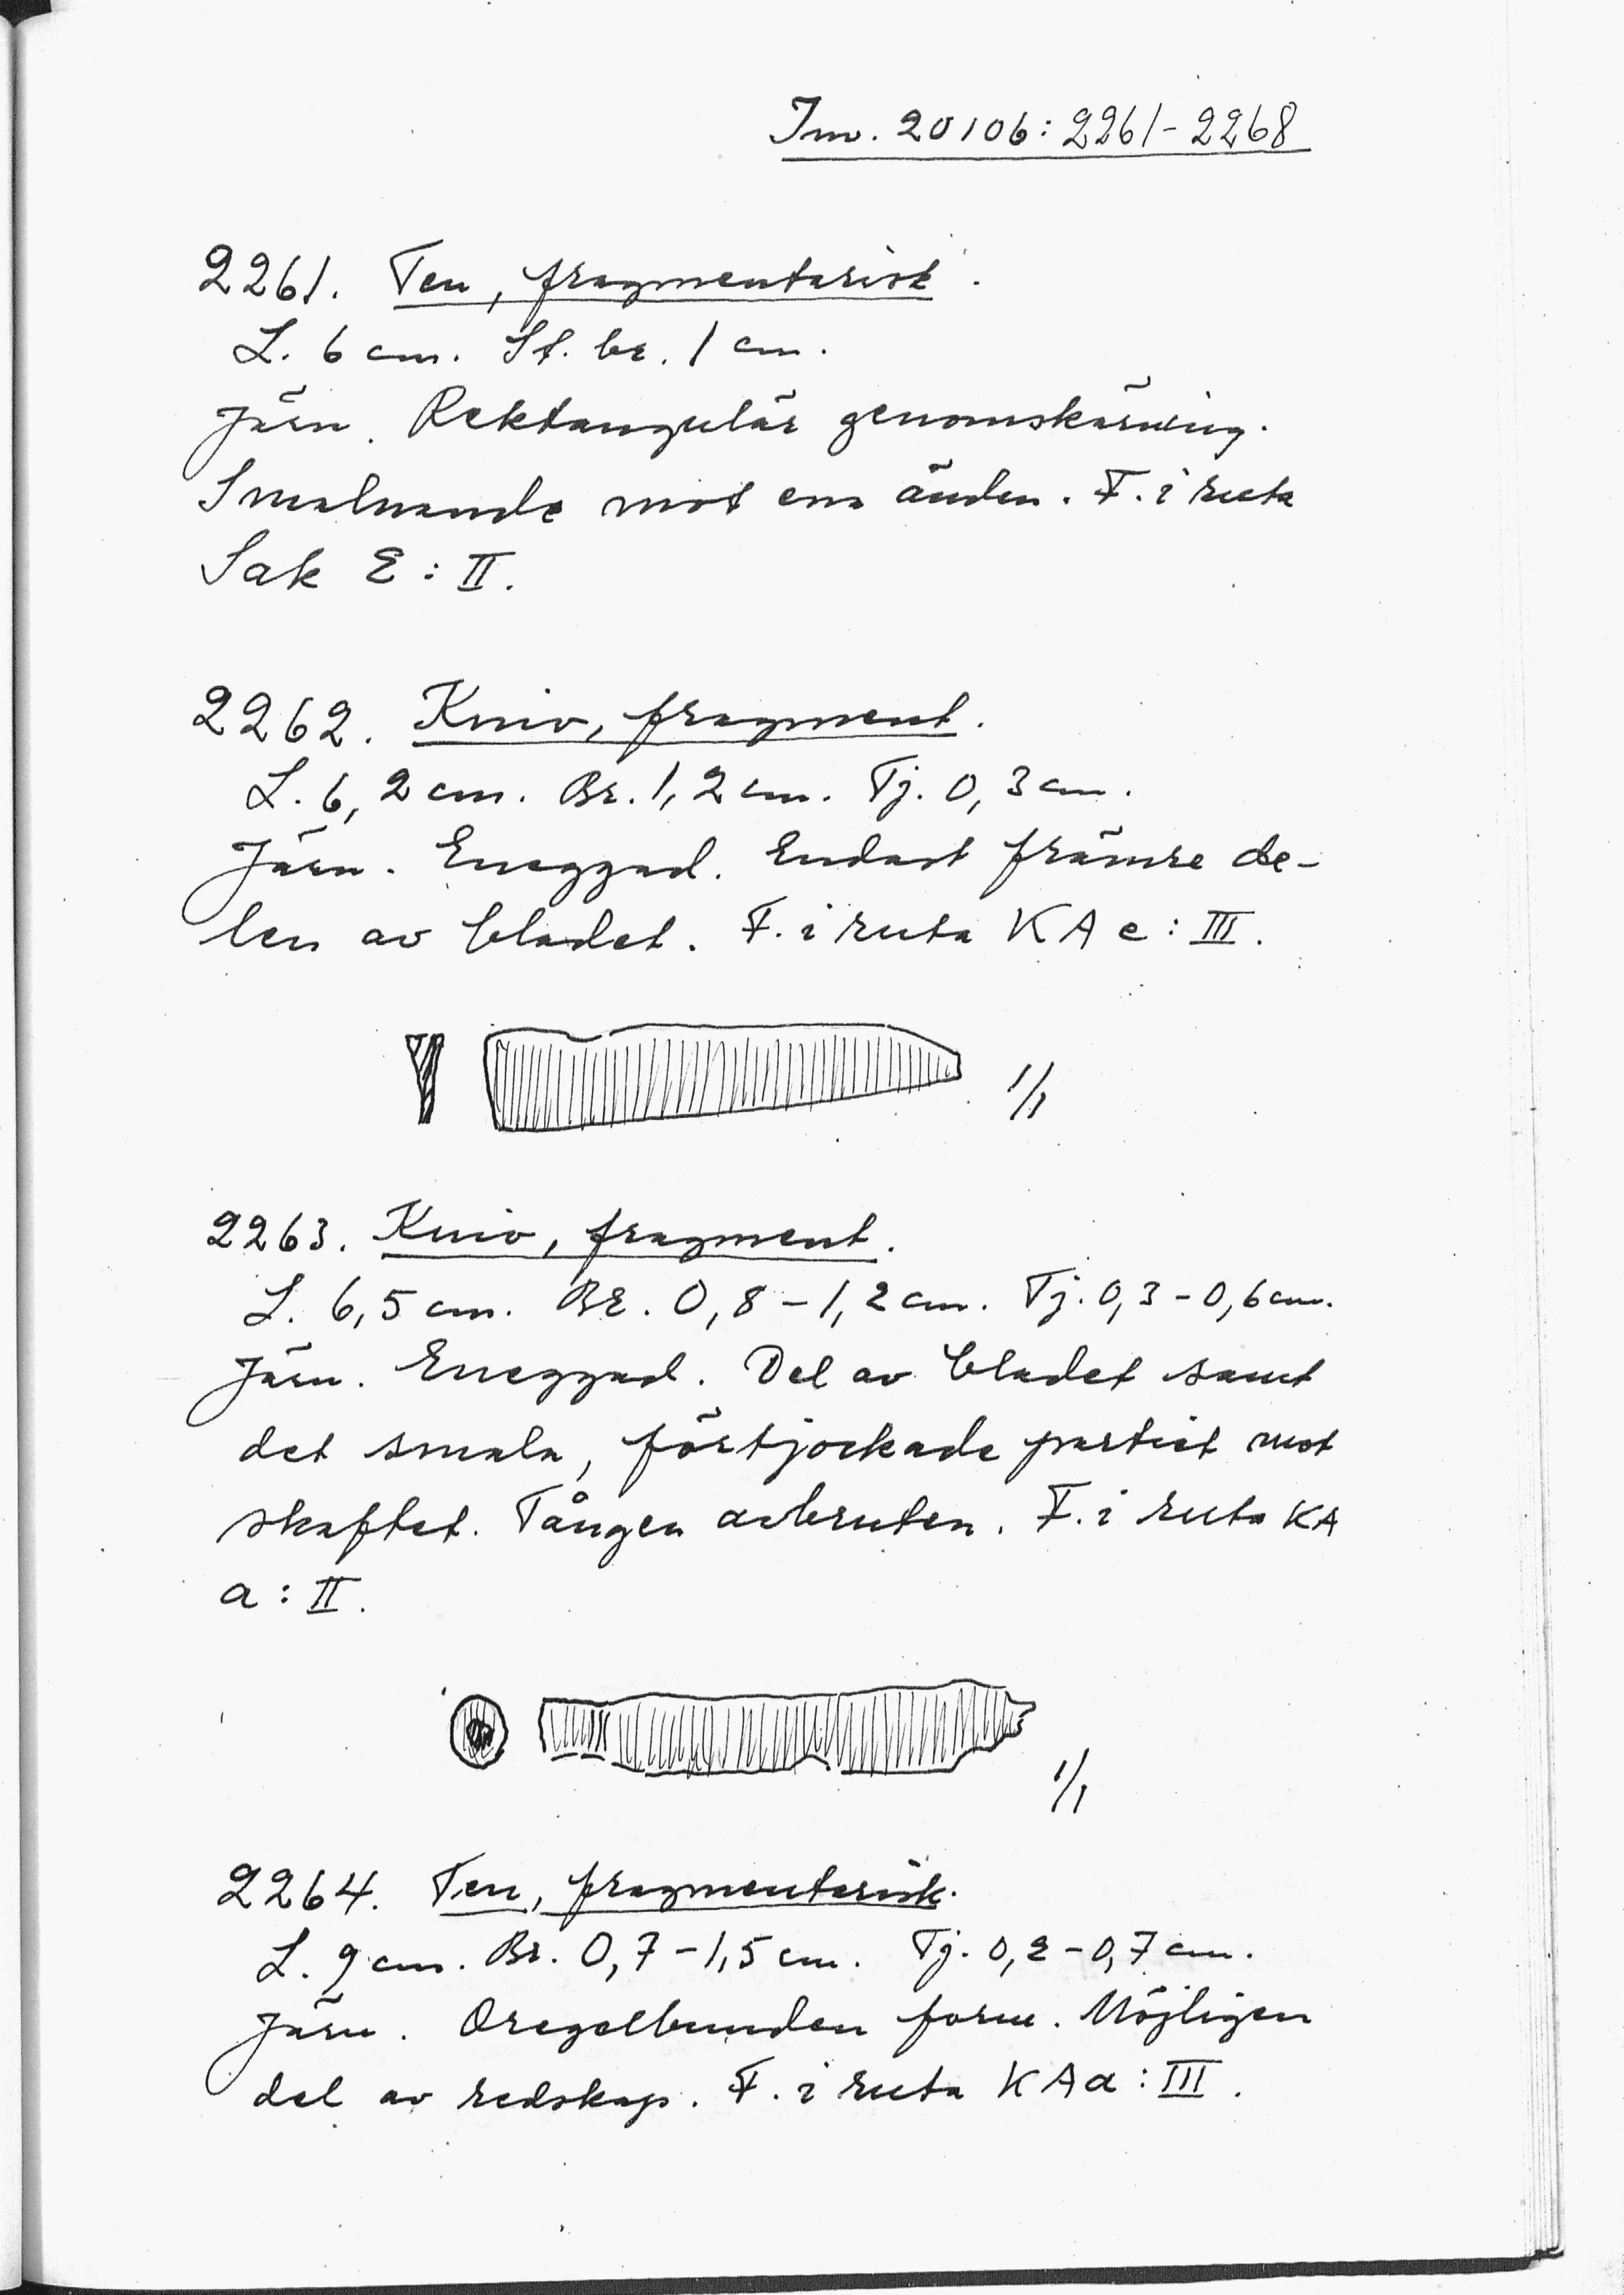 Inv. 20106:2261-2268
2261. Ten, fragmentarisk.
L. 6 cm. St. br. 1 cm.
Järn. Rektangulär genomskärning.
Smalnande mot ena änden. F. i ruta
Sak E:II.
2262. Kniv, fragment.
L. 6,2 cm. Br. 1,2 cm. Tj. 0,3 cm.
Järn. Eneggad. Endast främre de-
len av bladet. F. i ruta KA e:III.
1/1
2263. Kniv, fragment.
L. 6,5 cm. Br. 0,8-1,2 cm. Tj. 0,3-0,6 cm.
Järn. Eneggad. Del av bladet samt
det smala, förtjockade partiet mot
skaftet. Tången avbruten. F. i ruta KA
a:II.
1/1
2264. Ten, fragmentarisk.
L. 9 cm. Br. 0,7-1,5 cm. Tj. 0,2-0,7 cm.
Järn. Oregelbunden form. Möjligen
del av redskap. F. i ruta KA a:III.